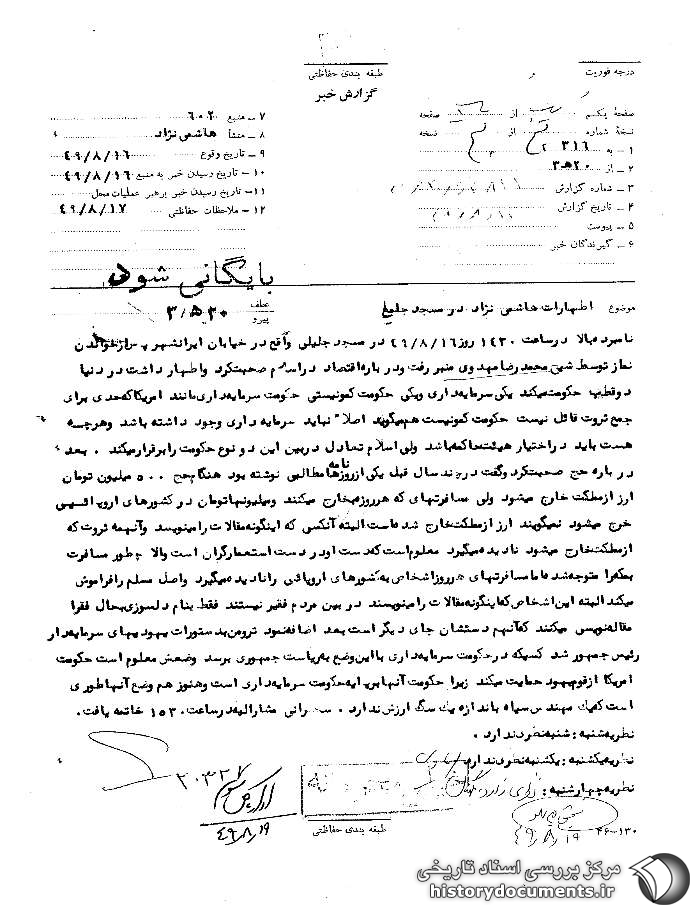 درجه فوریت
طبقه بندی حفاظتی
گزارش خبر
صفحه یکم از صفحه
نسخه شماره از نسخه
۱ ـ به ۳۱۶
۲ ـ از ۲۰ه۳
۳ ـ شماره گزارش
۴ ـ تاریخ گزارش
۵ ـ پیوست
۶ ـ گیرندگان خبر
۷ ـ منبع ۶۰۰۲
۸ ـ منشأ هاشمی نژاد
۹ ـ تاریخ وقوع ۴۹/۸/۱۶
۱۰ ـ تاریخ رسیدن خبر به منبع ۴۹/۸/۱۶
۱۱ ـ تاریخ رسیدن خبر برهبر عملیات محل
۱۲ ـ ملاحظات حفاظتی ۴۹/۸/۱۷
بایگانی شود
موضوع اظهارات هاشمی نژاد در مسجد جلیلی
عطف
پیرو
۳/۵۲۰
نامبرده بالا در ساعت ۱۴۳۰ روز ۴۹/۸/۱۶ در مسجد جلیلی واقع در خیابان ایرانشهر پس از خواندن
نماز توسط شیخ محمد رضا مهدوی منبر رفت و درباره اقتصاد در اسلام صحبت کرد و اظهار داشت در دنیا
دو قطب حکومت میکند یکی سرمایه داری ویکی حکومت کمونیستی حکومت سرمایه داری مانند امریکا که حدی برای
جمع ثروت قائل نیست حکومت کمونیست هم میگوید اصلا" نباید سرمایه داری وجود داشته باشد وهرچه
هست باید در اختیار هیئت حاکمه باشد ولی اسلام تعادل در بین این دو نوع حکومت را برقرار میکند . بعد
در باره حج صحبت کرد و گفت در چند سال قبل یکی از روزنامه ها مطالبی نوشته بود هنگام حج ۵۰۰ میلیون تومان
ارز از مملکت خارج میشود ولی مسافرتهای که هر روزه بخارج میکنند و میلیونها تومان در کشورهای اروپائی
خرج میشود نمیگویند ارز از مملکت خارج شده است البته آنکسی که اینگونه مقالات را مینویسد و آنهمه ثروت که
از مملکت خارج میشود نادیده میگیرد معلوم است که دست او در دست استعمارگران است والا چطور مسافرت
بمکه را متوجه شده اما مسافرتهای هر روز اشخاص به کشورهای اروپائی را نادیده میگیرد واصل مسلم را فراموش
میکند البته این اشخاص که اینگونه مقالات را مینویسند در بین مردم فقیر نیستند فقط بنام دلسوزی بحال فقرا
مقاله نویسی میکنند که آنهم دستشان جای دیگر است بعد اضافه نمود ترومن بدستورات یهودیهای سرمایه دار
رئیس جمهور شد کسیکه در حکومت سرمایه داری با این وضع به ریاست جمهوری برسد وضعش معلوم است حکومت
امریکا از قوم یهود حمایت میکند زیرا حکومت آنها بر پایه حکومت سرمایه داری است وهنوز هم وضع آنها طوری
است که یک مهندس سیاه باندازه یک سگ ارزش ندارد . سخنرانی مشارالیه در ساعت ۱۵۳۰ خاتمه یافت .
نظریه شنبه : شنبه نظر ندارد .
نظریه یکشنبه : یکشنبه نظر ندارد
نظریه چهارشنبه :
۲۰۳۲۷
۴۹/۸/۱۹
طبقه بندی حفاظتی
۴۹/۸/۱۹
۴۶-۱۳۰
مرکز بررسی اسناد تاریخی
historydocuments.ir